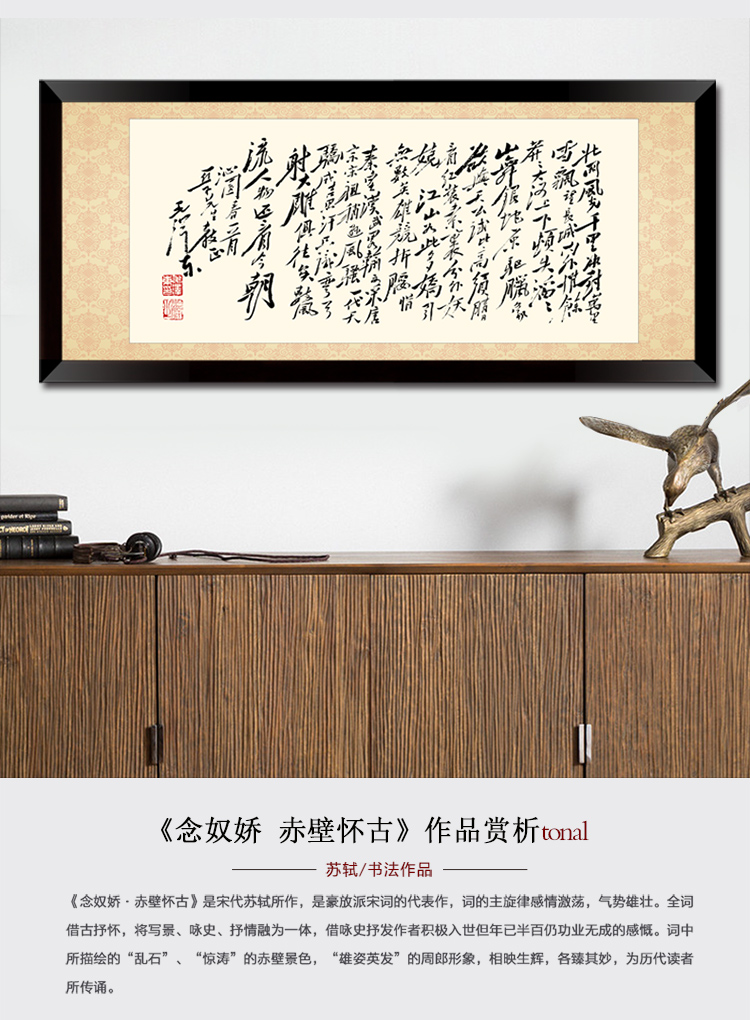 北國風光千里冰封萬里
雪飄望長城內外惟餘
莽莽大河上下頓失滔滔
山舞銀蛇原馳臘象
欲與天公試比高須晴日
看紅裝素裹分外妖
嬈 江山如此多嬌引
無數英雄競折腰惜
秦皇漢武略輸文采唐
宗宋祖稍遜風騷一代天
驕成吉思汗只識彎弓
射大雕俱往矣數風
流人物還看今朝
沁園春一首
亞子先生教正
毛澤東
《念奴娇 赤壁怀古》作品赏析tonal
苏轼/书法作品
《念奴娇·赤壁怀古》是宋代苏轼所作，是豪放派宋词的代表作，词的主旋律感情激荡，气势雄壮。全词
借古抒怀，将写景、咏史、抒情融为一体，借咏史抒发作者积极入世但年已半百仍功业无成的感慨。词中
所描绘的“乱石”、“惊涛”的赤壁景色，“雄姿英发”的周郎形象，相映生辉，各臻其妙，为历代读者
所传诵。